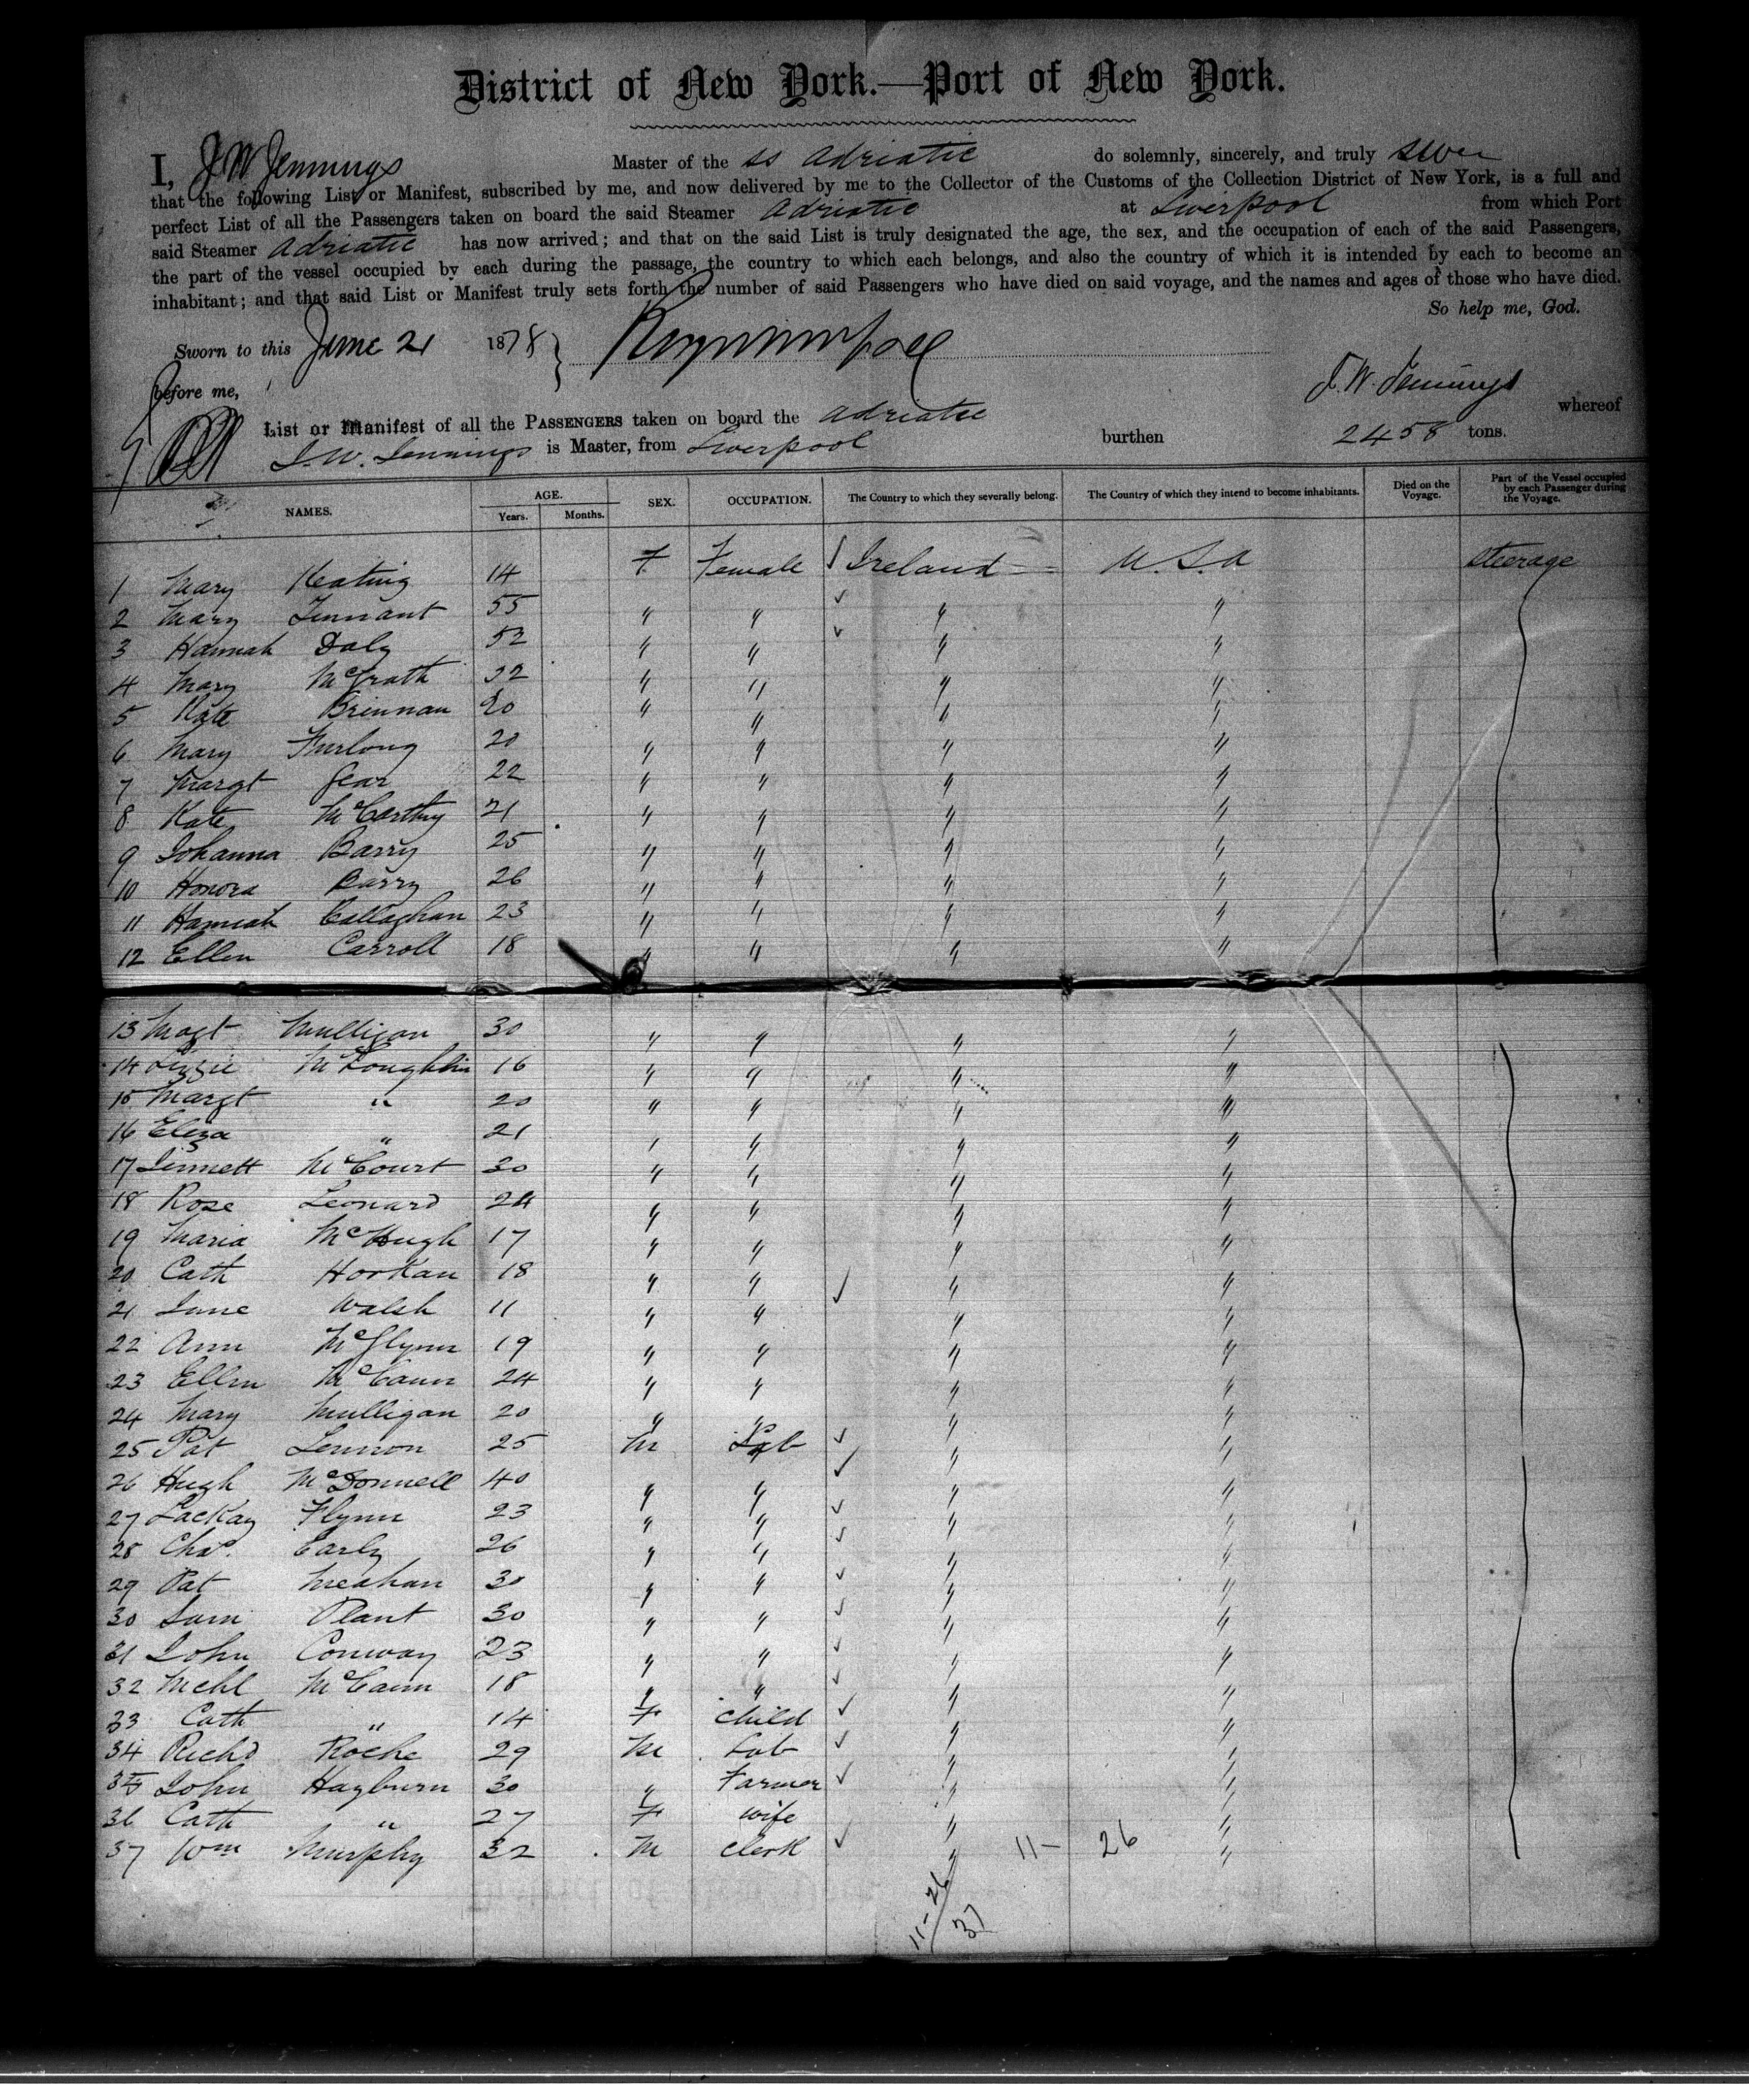 District of New York.—Port of New York.
I, J W Jennings Master of the ss Adriatic do solemnly, sincerely, and truly swear
that the following List or Manifest, subscribed by me, and now delivered by me to the Collector of the Customs of the Collection District of New York, is a full and
perfect List of all the Passengers taken on board the said Steamer Adriatic at Liverpool from which Port
said Steamer Adriatic has now arrived; and that on the said List is truly designated the age, the sex, and the occupation of each of the said Passengers,
the part of the vessel occupied by each during the passage, the country to which each belongs, and also the country of which it is intended by each to become an
inhabitant; and that said List or Manifest truly sets forth the number of said Passengers who have died on said voyage, and the names and ages of those who have died.
So help me, God.
Sworn to this June 21 1878
before me, J. W. Jennings
List or Manifest of all the PASSENGERS taken on board the Adriatic whereof
J. W. Jennings is Master, from Liverpool burthen 2458 tons.
NAMES. AGE. Years. Months. SEX. OCCUPATION. The Country to which they severally belong. The Country of which they intend to become inhabitants. Died on the Voyage. Part of the Vessel occupied by each Passenger during the Voyage.
1 Mary Keating 14 F Female Ireland U.S.A Steerage
2 Mary Tennant 55 " " " "
3 Hannah Daly 52 " " " "
4 Mary McGrath 32 " " " "
5 Kate Brennan 20 " " " "
6 Mary Furlong 20 " " " "
7 Margt Gear 22 " " " "
8 Kate McCarthy 21 " " " "
9 Johanna Barry 25 " " " "
10 Honora Barry 26 " " " "
11 Hannah Callaghan 23 " " " "
12 Ellen Carroll 18 " " " "
13 Magt Mulligan 30 " " " "
14 Lizzie McLoughlin 16 " " " "
15 Margt " 20 " " " "
16 Eliza " 21 " " " "
17 Jennett McCourt 30 " " " "
18 Rose Leonard 24 " " " "
19 Maria McHugh 17 " " " "
20 Cath Horkan 18 " " " "
21 Jane Walsh 11 " " " "
22 Ann McGlynn 19 " " " "
23 Ellen McCann 24 " " " "
24 Mary Mulligan 20 " " " "
25 Pat Lennon 25 M Lab " "
26 Hugh McDonnell 40 " " " "
27 Lackay Flynn 23 " " " "
28 Chas. Early 26 " " " "
29 Pat Meahan 30 " " " "
30 Sam Plant 30 " " " "
31 John Conway 23 " " " "
32 Mchl McCann 18 " " " "
33 Cath " 14 F Child " "
34 Richd Roche 29 M Lab " "
35 John Hayburn 30 " Farmer " "
36 Cath " 27 F Wife " "
37 Wm Murphy 32 M Clerk " 11- 26 "
11-26
37